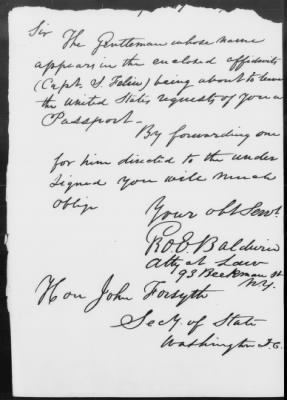 Sir The Gentleman whose name
appears in the enclosed affidavits
(Capt. S. ) being about to leave
the United States requests of you a
Passport.
By forwarding one
for him directed to the under
signed you will much
oblige
Your obt Servt.
Ro E. Baldwin
atty at Law
93 Beekman St
N.Y.
Hon John Forsyth
Secy. of State
Washington D.C.